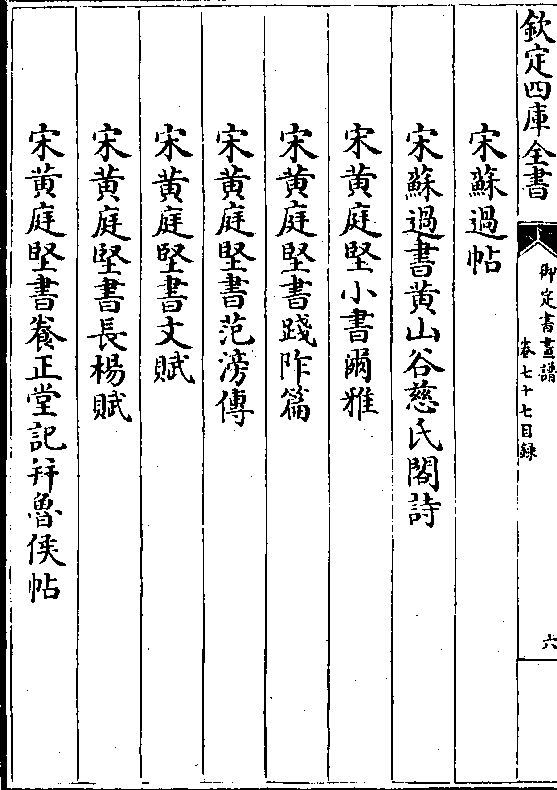 欽定四庫全書
御定書畫譜
卷七十七目録
六
宋蘇過帖
宋蘇過書黄山谷慈氏閣詩
宋黄庭堅小書爾雅
宋黄庭堅書踐阼篇
宋黄庭堅書范滂傳
宋黄庭堅書文賦
宋黄庭堅書長楊賦
宋黄庭堅書養正堂記并魯侯帖